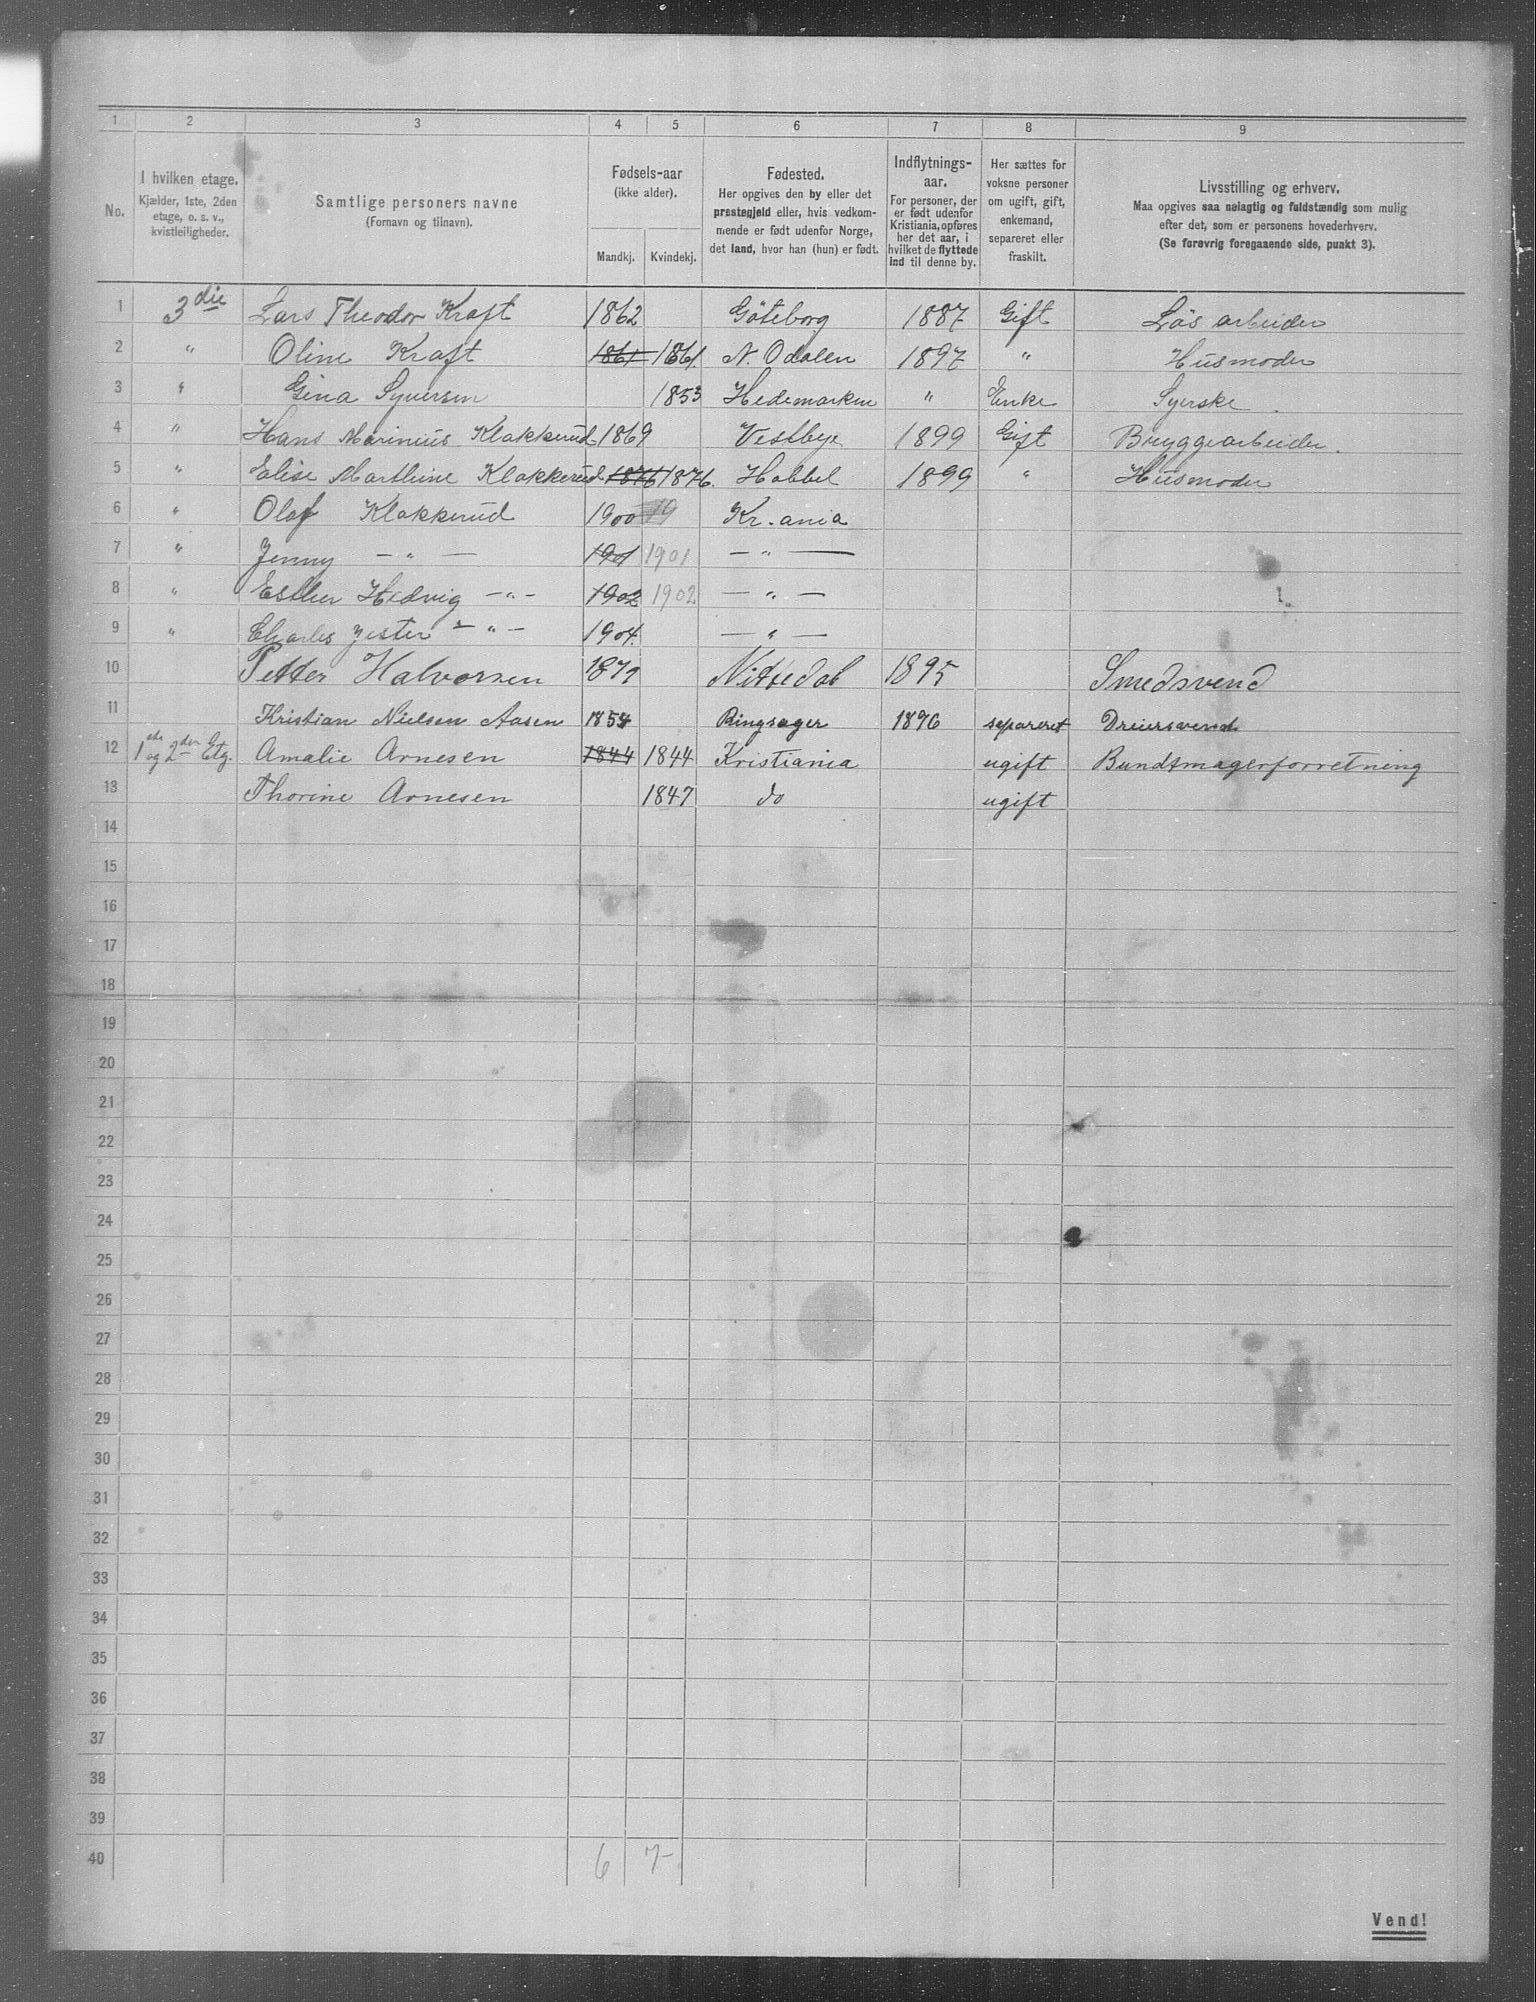 1 2 3 4 5 6 7 8 9
No.
I hvilken etage.
Kjælder, 1ste, 2den
etage, o. s. v.,
kvistleiligheder.
Samtlige personers navne
(Fornavn og tilnavn).
Fødsels-aar
(ikke alder).
Mandkj. Kvindekj.
Fødested.
Her opgives den by eller det
præstegjeld eller, hvis vedkom-
mende er født udenfor Norge,
det land, hvor han (hun) er født.
Indflytnings-
aar.
For personer, der
er født udenfor
Kristiania, opføres
her det aar, i
hvilket de flyttede
ind til denne by.
Her sættes for
voksne personer
om ugift, gift,
enkemand,
separeret eller
fraskilt.
Livsstilling og erhverv.
Maa opgives saa nøiagtig og fuldstændig som mulig
efter det, som er personens hovederhverv.
(Se forøvrig foregaaende side, punkt 3).
1 3die Lars Theodor Kraft 1862 Göteborg 1887 Gift Lös arbeider
2 " Oline Kraft 1861 1861. N. Odalen 1897 " Husmoder
3 " Gina Syversen 1853 Hedemarken " Enke Syerske.
4 " Hans Marinius Klakkerud 1869 Vestbye 1899 Gift Bryggearbeider.
5 " Elise Marthine Klakkerud 1876 1876. Hobbel 1899 " Husmoder
6 " Olaf Klakkerud 1900 19 Kr.ania
7 " Jenny — " — 1901 1901 — " —
8 " Esther Hedvig — " — 1902 1902 — " —
9 " Charles Jester — " — 1904. — " —
10 Petter Halvorsen 1879 Nittedal 1895 Smedsvend
11 Kristian Nielsen Aasen 1854 Ringsager 1896 separeret Dreiersvend
12 1ste og 2den Etg. Amalie Arnesen 1844 1844 Kristiania ugift Bundtmagerforretning
13 Thorine Arnesen 1847 do ugift
14
15
16
17
18
19
20
21
22
23
24
25
26
27
28
29
30
31
32
33
34
35
36
37
38
39
40 6 7
Vend!